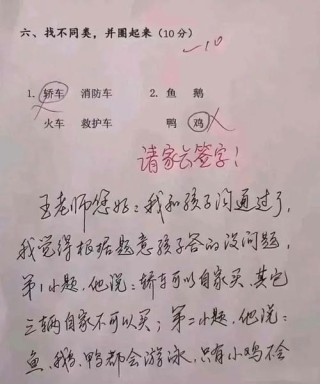 六、找不同类，并圈起来（10分）
-10
1. 轿车 消防车 2. 鱼 鹅
火车 救护车 鸭 鸡
请家长签字！
王老师您好：我和孩子沟通过了，
我觉得根据题意孩子答的没问题，
第1小题，他说：轿车可以自家买，其它
三辆自家不可以买；第二小题，他说：
鱼、鹅、鸭都会游泳，只有小鸡不会